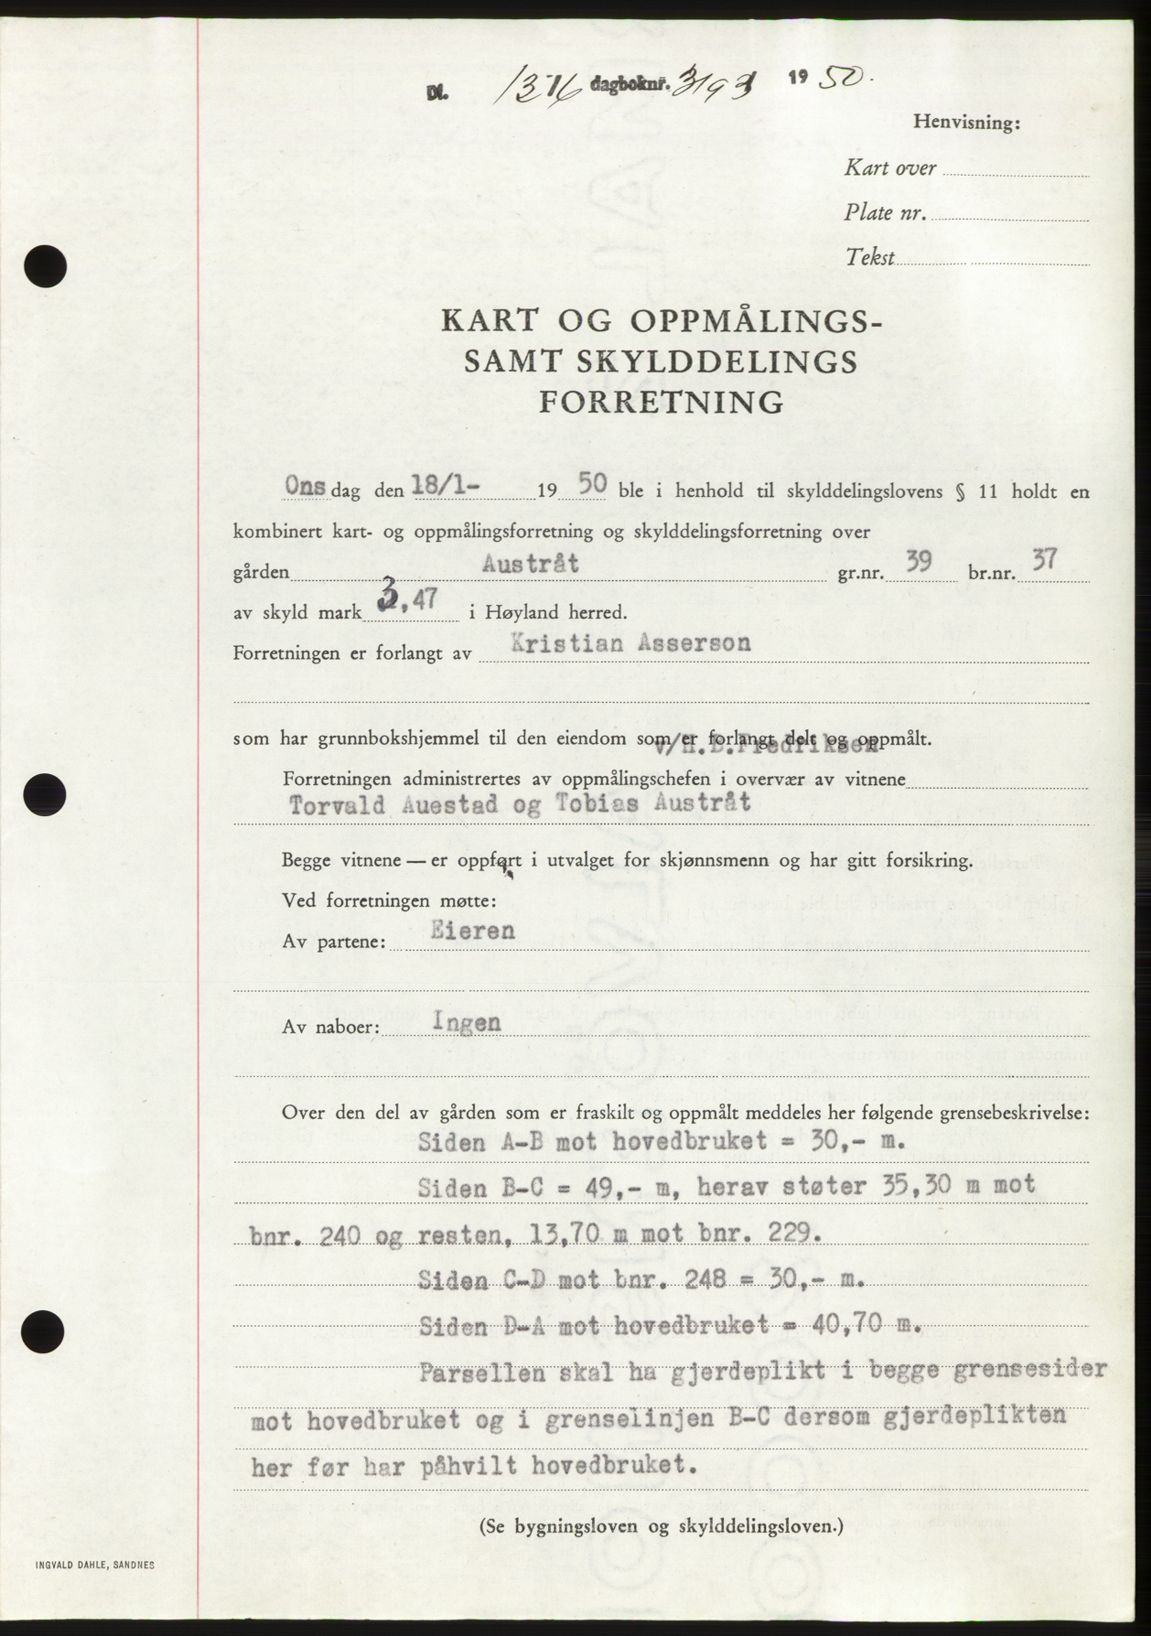 Dl. 1376 dagboknr. 3193 1950.
Henvisning:
Kart over
Plate nr.
Tekst
KART OG OPPMÅLINGS-
SAMT SKYLDDELINGS
FORRETNING
Onsdag den 18/1- 1950 ble i henhold til skylddelingslovens § 11 holdt en
kombinert kart- og oppmålingsforretning og skylddelingsforretning over
gården Austråt gr.nr. 39 br.nr. 37
av skyld mark 3,47 i Høyland herred.
Forretningen er forlangt av Kristian Asserson
som har grunnbokshjemmel til den eiendom som er forlangt delt og oppmålt.
Forretningen administrertes av oppmålingschefen v/H.B.Fredriksen i overvær av vitnene
Torvald Auestad og Tobias Austråt
Begge vitnene — er oppført i utvalget for skjønnsmenn og har gitt forsikring.
Ved forretningen møtte:
Av partene: Eieren
Av naboer: Ingen
Over den del av gården som er fraskilt og oppmålt meddeles her følgende grensebeskrivelse:
Siden A-B mot hovedbruket = 30,- m.
Siden B-C = 49,- m, herav støter 35,30 m mot
bnr. 240 og resten, 13,70 m mot bnr. 229.
Siden C-D mot bnr. 248 = 30,- m.
Siden D-A mot hovedbruket = 40,70 m.
Parsellen skal ha gjerdeplikt i begge grensesider
mot hovedbruket og i grenselinjen B-C dersom gjerdeplikten
her før har påhvilt hovedbruket.
(Se bygningsloven og skylddelingsloven.)
INGVALD DAHLE, SANDNES